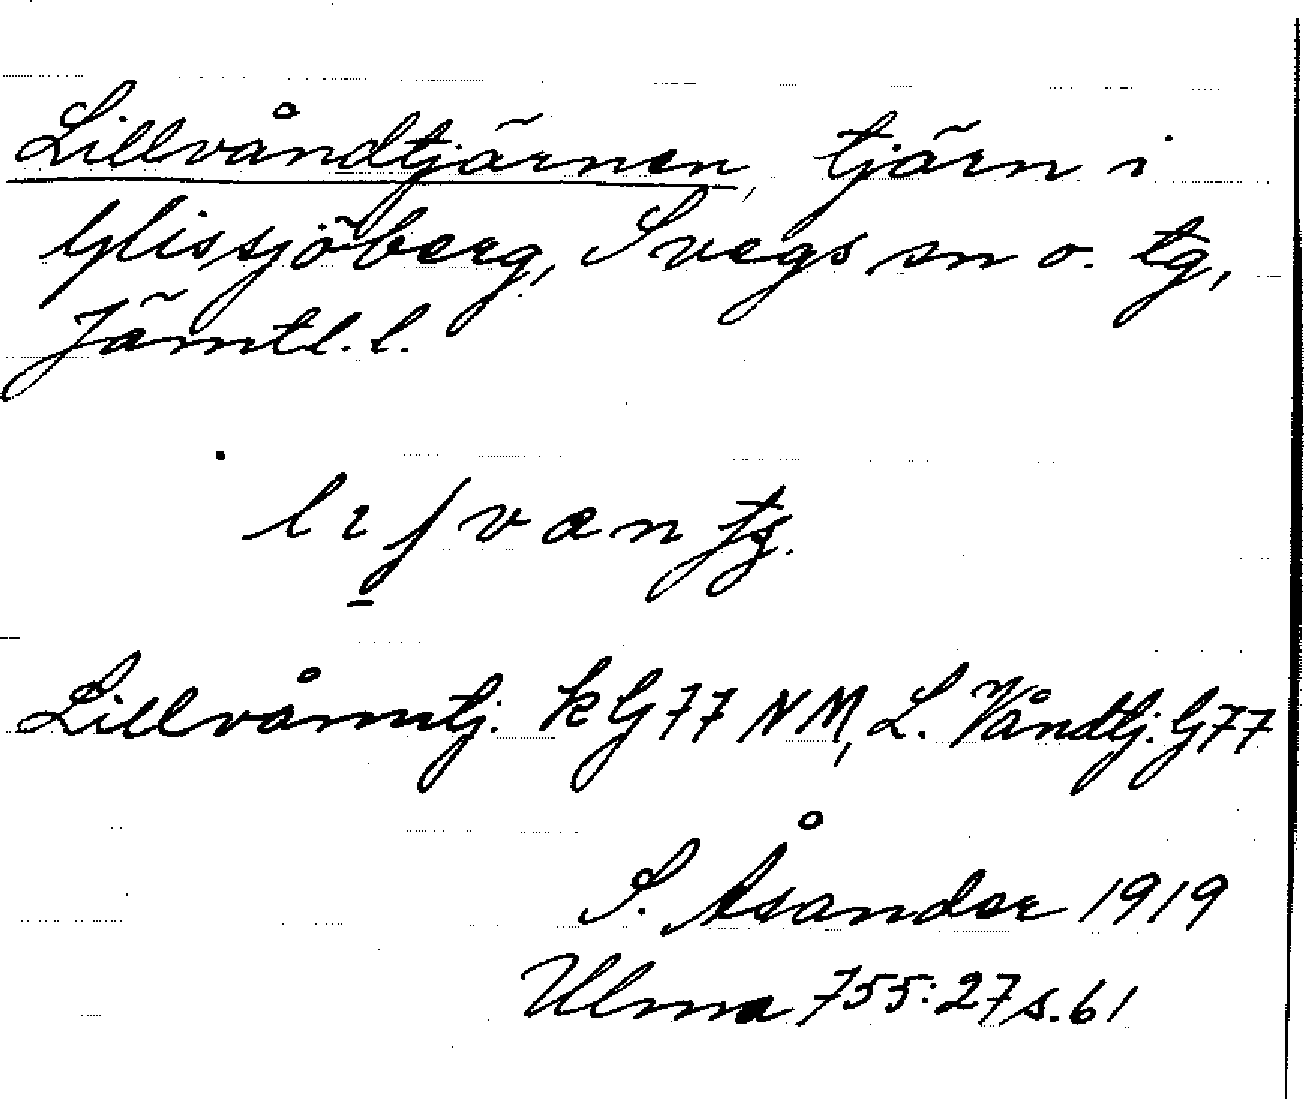 Lillvåndtjärnen, tjärn i
Glissjöberg, Svegs sn o. tg,
Jämtl. l.
Lillvåmtj. kG77 NM, L. Våndtj. G77
S. Åsander 1919
Ulma 755:27 s. 61